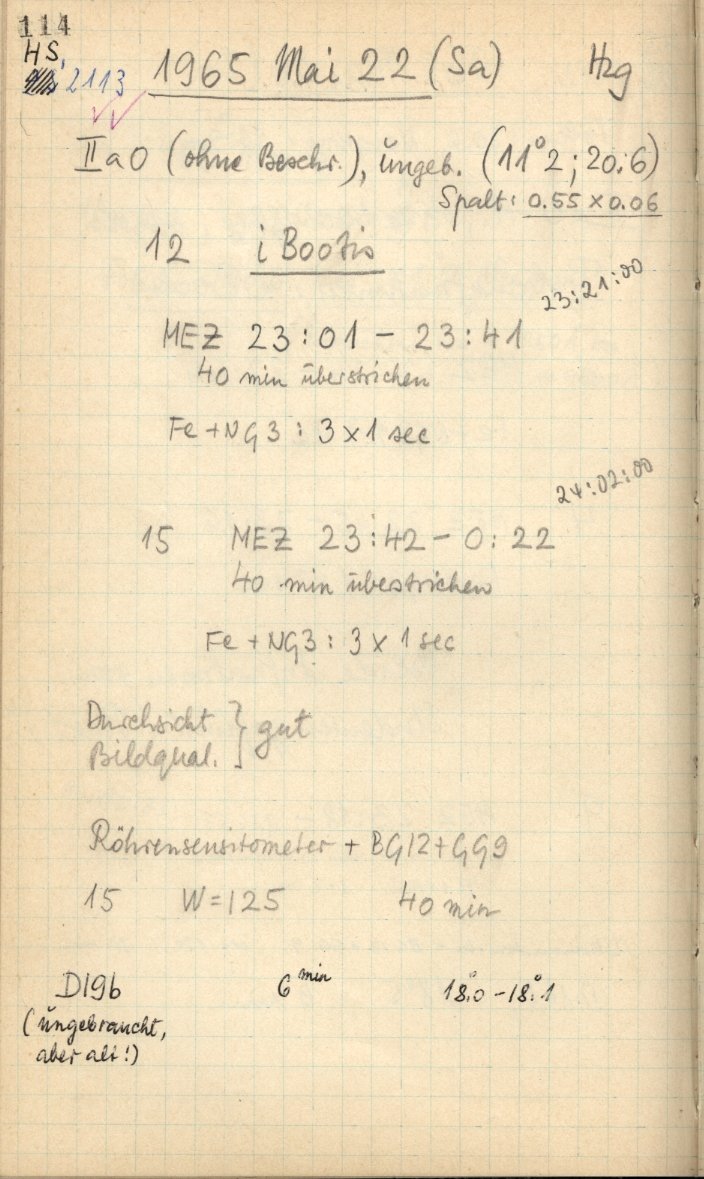 114
HS, 2113
1965 Mai 22 (Sa) Hzg
IIaO (ohne Beschr.), ungeb. (11°2; 20.6)
Spalt: 0.55 × 0.06
12 i Bootis
23:21:00
MEZ 23:01 - 23:41
40 min überstrichen
Fe + NG3: 3 × 1 sec
24:02:00
15 MEZ 23:42 - 0:22
40 min überstrichen
Fe + NG3: 3 × 1 sec
Durchsicht } gut
Bildqual.
Röhrensensitometer + BG12 + GG9
15 W=125 40 min
D19b 6 min 18.°0 - 18.°1
(ungebraucht,
aber alt!)